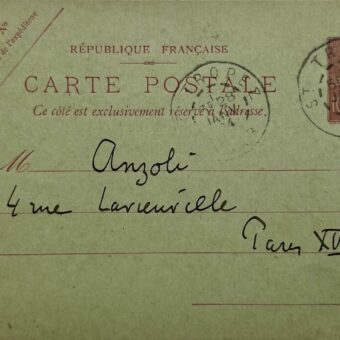 No
de l'expéditeur
RÉPUBLIQUE FRANÇAISE
CARTE POSTALE
Ce côté est exclusivement réservé à l'adresse.
M Anzoli
4 rue Lavieuville
Paris XV
ST. TR
28